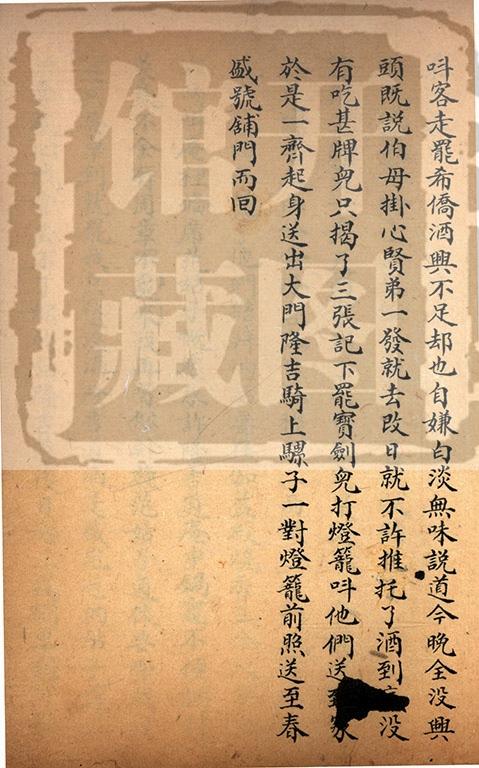 呌客走罷希僑酒興不足却也自嫌白淡無味說道今晩全没興
頭既說伯母掛心賢弟一發就去改日就不許推托了酒到没
有吃甚牌兒只揭了三張記下罷寶劍兒打燈籠呌他們送家
於是一齊起身送出大門隆吉騎上騾子一對燈籠前照送至春
盛號舖門而回